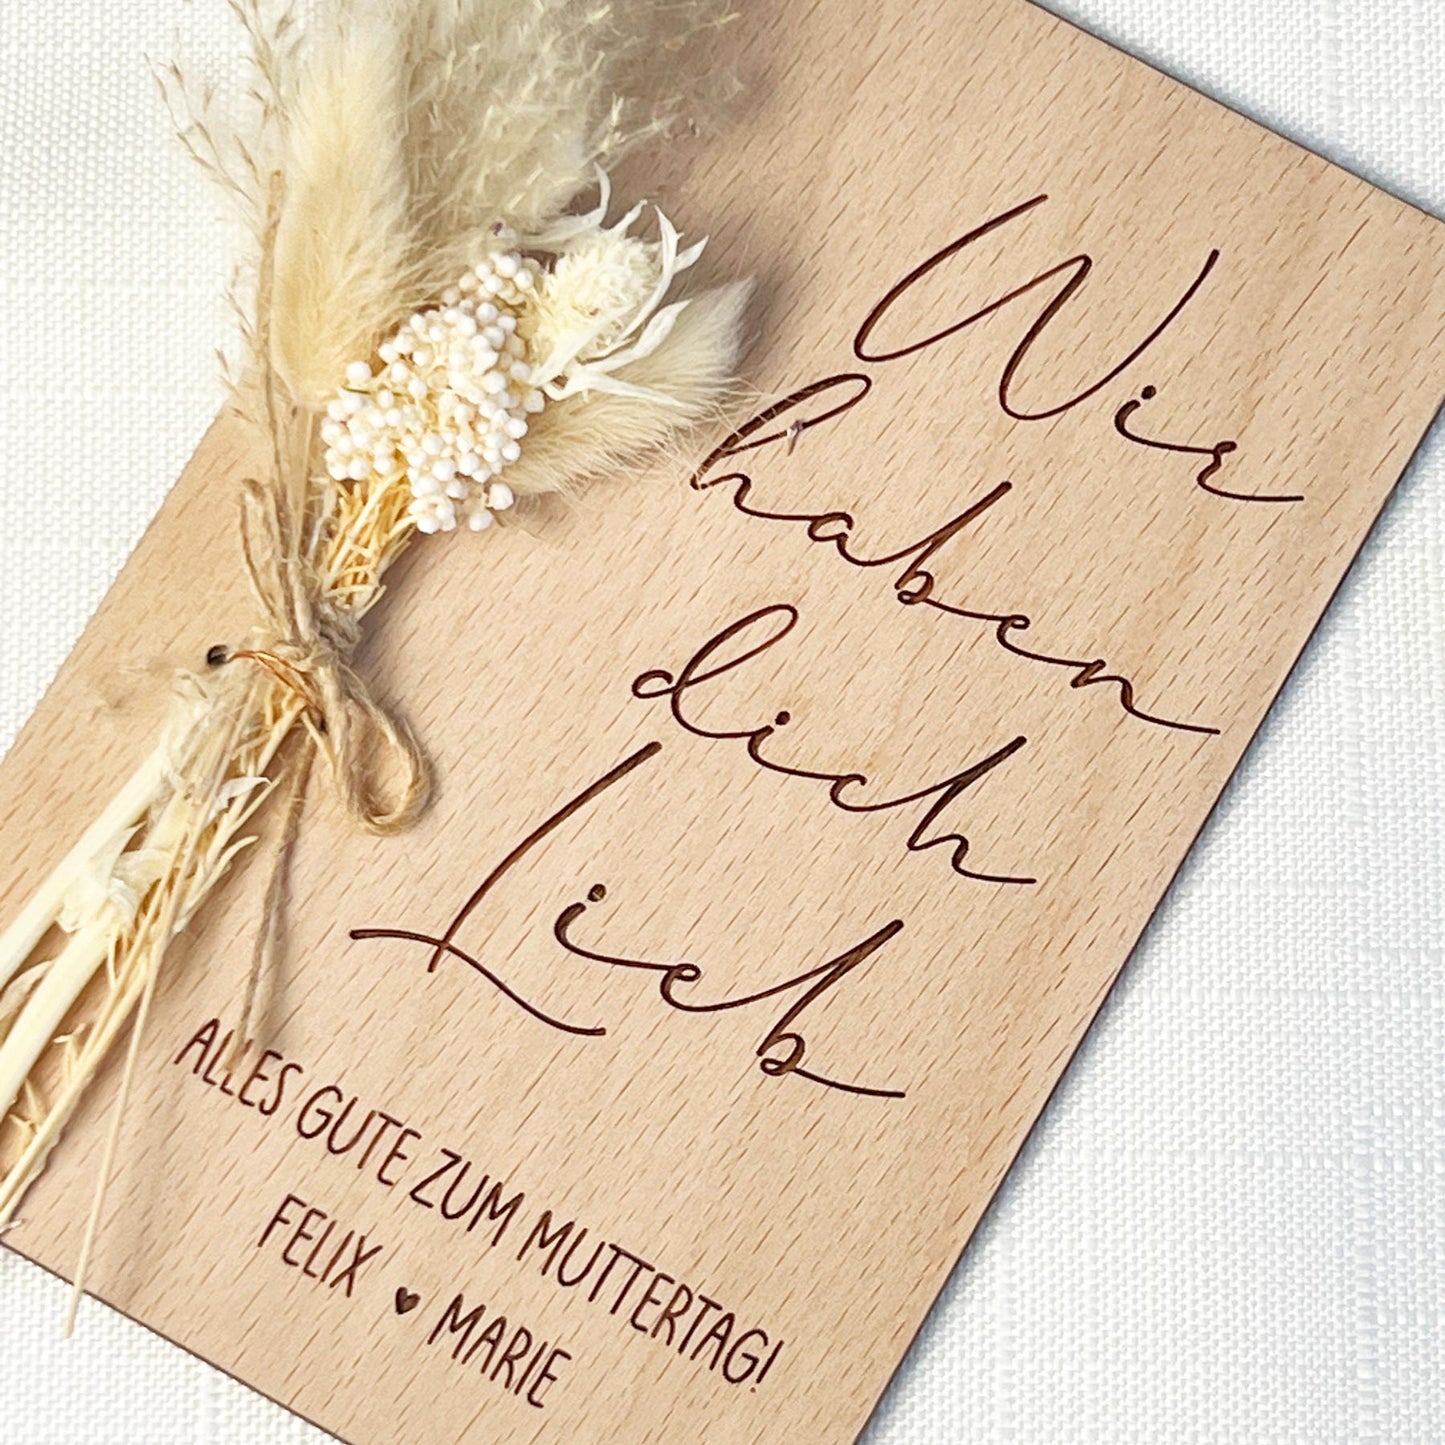 Wir
haben
dich
Lieb
ALLES GUTE ZUM MUTTERTAG!
FELIX ♥ MARIE